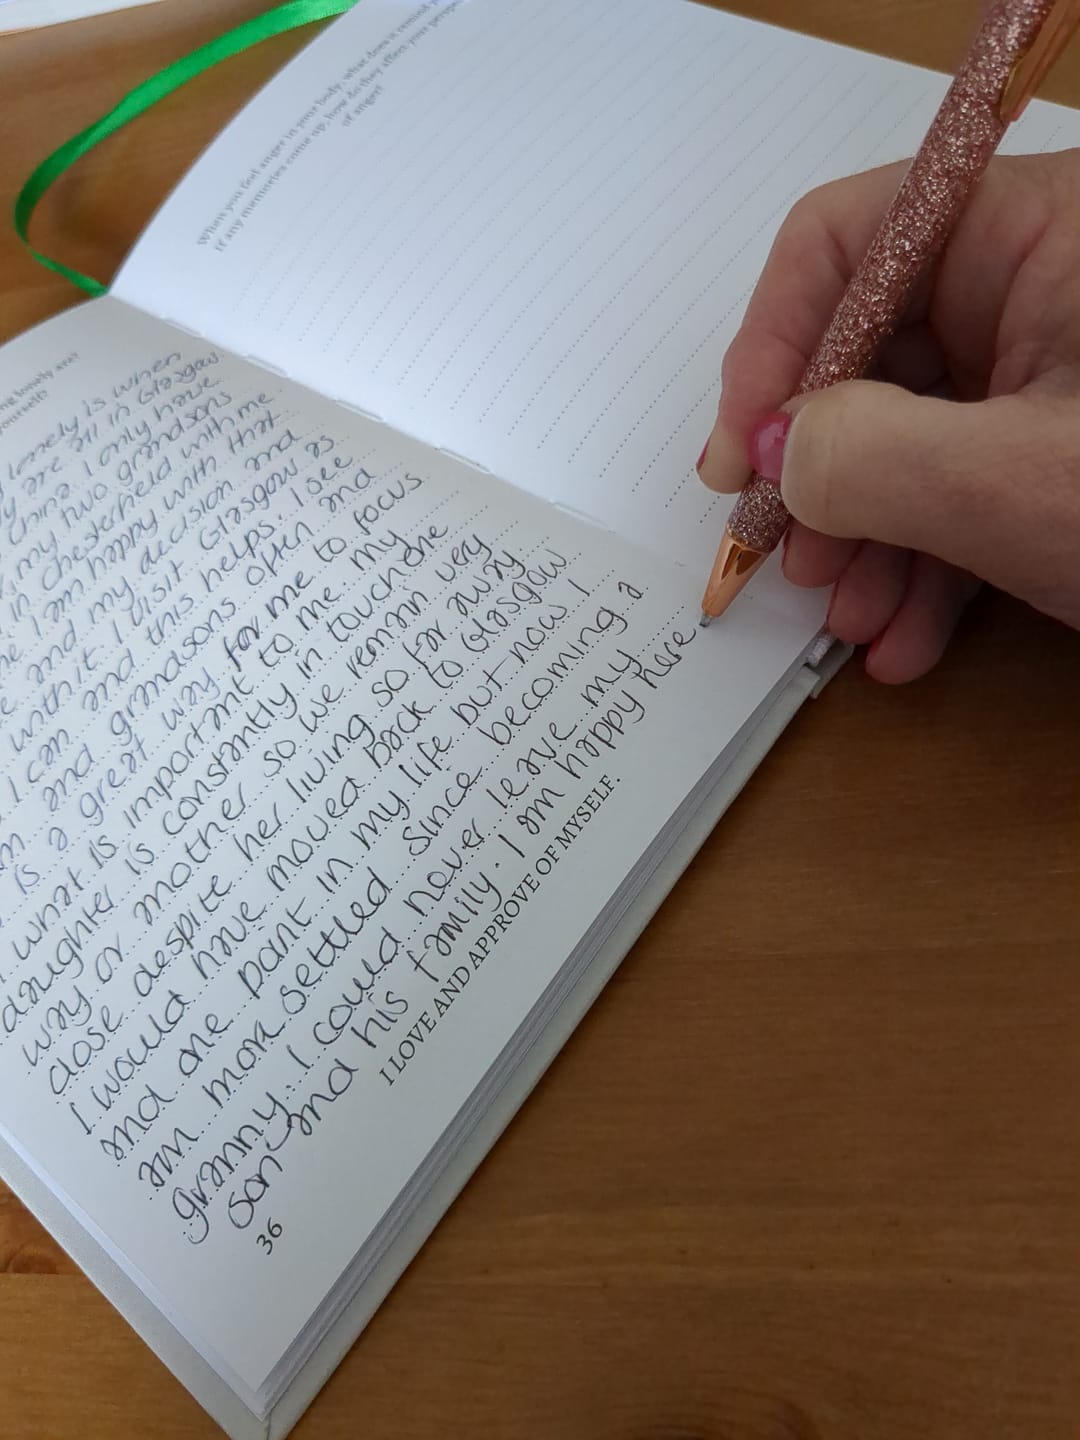 lonely is when
are all in Glasgow
China. I only have
my two grandsons
in Chesterfield with me
I am happy with that
and my decision and
with it. I visit Glasgow as
I can and this helps. I see
and grandsons often and
is a great way for me to focus
what is important to me. My
daughter is constantly in touch one
way or another so we remain very
close despite her living so far away
I would have moved back to Glasgow
and one point in my life but now I
am more settled since becoming a
granny. I could never leave my
son and his family. I am happy here
I LOVE AND APPROVE OF MYSELF.
36
When you feel anger in your body, what does it remind
If any memories come up, how do they affect your
of anger?